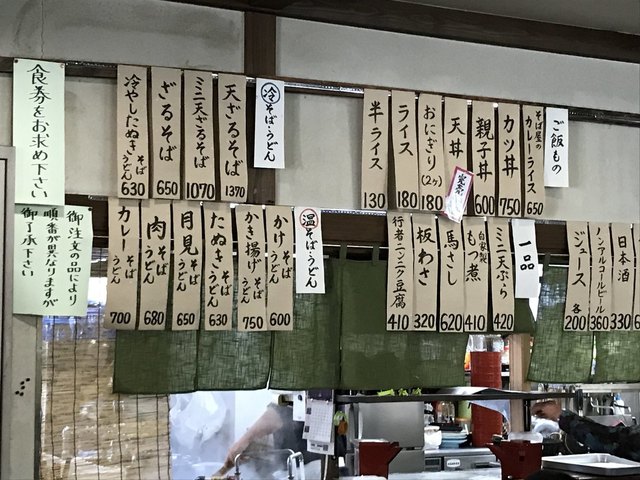 食券をお求め下さい
御注文の品により
順番が異なりますが
御了承下さい
冷そば・うどん
天ざるそば 1370
ミニ天ざるそば 1070
ざるそば 650
冷やしたぬきそばうどん 630
温そば・うどん
かけそばうどん 600
かき揚げそばうどん 750
たぬきそばうどん 630
月見そばうどん 650
肉そばうどん 680
カレーそばうどん 700
ご飯もの
そば屋のカレーライス 650
カツ丼 750
親子丼 600
天丼
おにぎり(2ヶ) 180
ライス 180
半ライス 130
一品
ミニ天ぷら 420
自家製もつ煮 410
馬さし 620
板わさ 320
行者ニンニク豆腐 410
日本酒 330
ノンアルコールビール 360
ジュース 各200